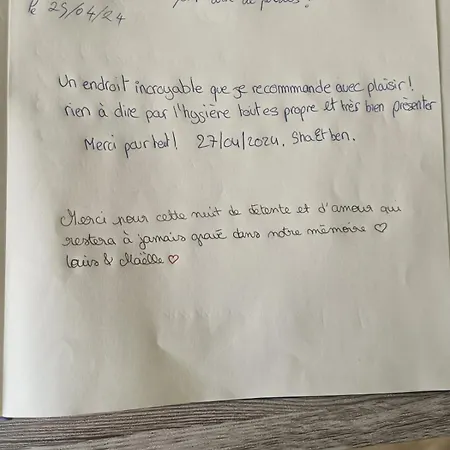 le 25/04/24
Un endroit incroyable que je recommande avec plaisir!
rien à dire par l'hygière toutes propre et très bien présenter
Merci pour tout! 27/04/2024. Sha Et ben.
Merci pour cette nuit de détente et d'amour qui
restera à jamais gravé dans notre mémoire ♡
Louis & Maëlle ♡